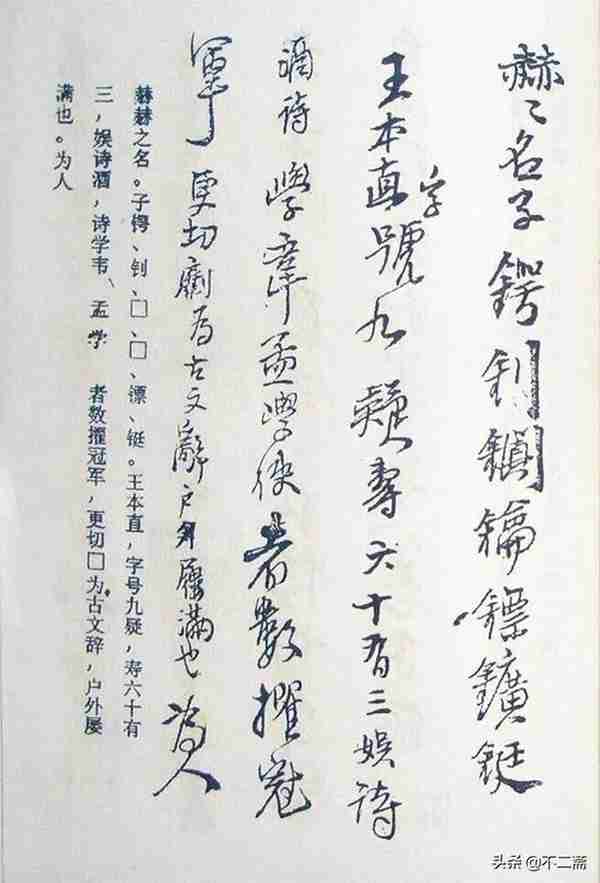 赫〻名子鍔釗鏢鑛鋌
王本直字號九疑壽六十有三娱詩
酒詩學韋孟學者數擢冠
軍更切劘为古文辭户外屨滿也為人
赫赫之名。子锷、钊、□、□、漂、铤。王本直，字号九疑，寿六十有
三，娱诗酒，诗学韦、孟 学 者数擢冠军，更切□为古文辞，户外屡
满也。为人
头条 @不二斋